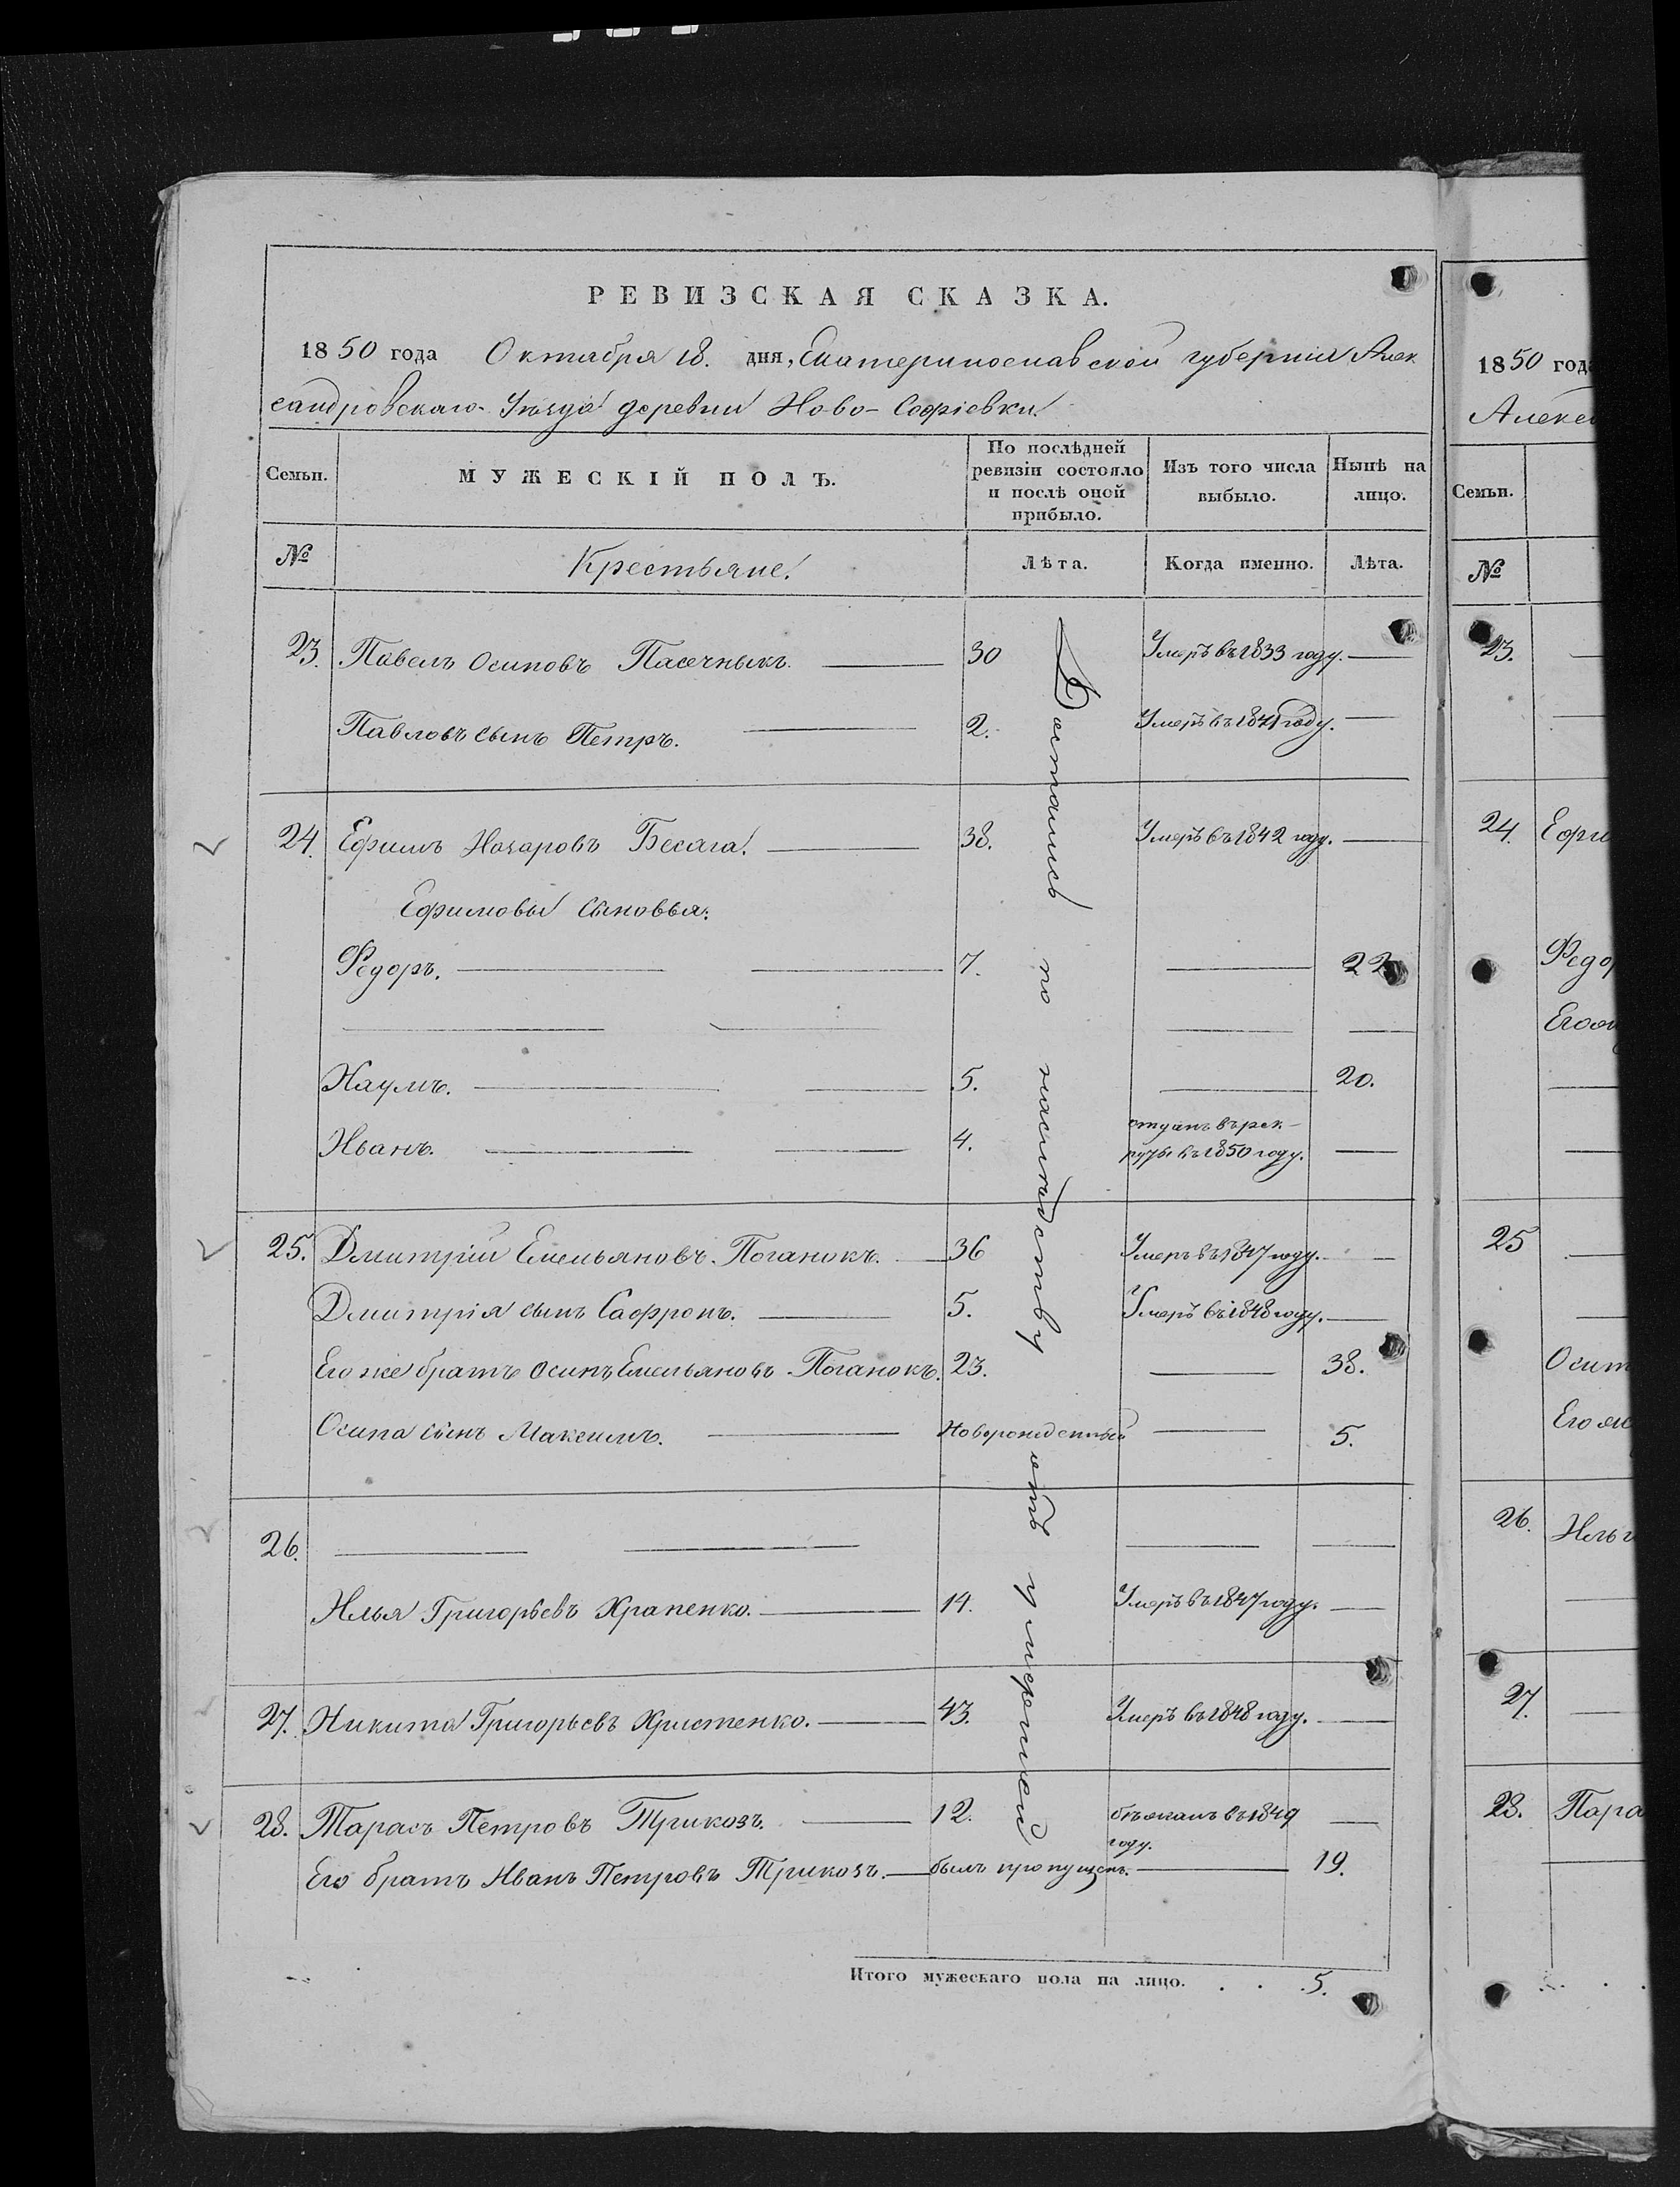 РЕВИЗСКАЯ СКАЗКА.
1850 года Октября 18. дня, Екатеринославской губернии Алек
сандровскаго Уѣзда деревни Ново-Софіевки
Семьи. МУЖЕСКІЙ ПОЛЪ. По послѣдней ревизіи состояло и послѣ оной прибыло. Изъ того числа выбыло. Нынѣ на лицо.
№ Крестьяне. Лѣта. Когда именно. Лѣта.
23. Павелъ Осиповъ Пасечныкъ. 30 Умеръ въ 1833 году.
Павловъ сынъ Петръ. 2. Умеръ въ 1841 году.
24. Ефимъ Назаровъ Бесага. 38. Умеръ въ 1842 году.
Ефимовы сыновья:
Федоръ. 7. 22
Наумъ. 5. 20.
Иванъ. 4. отданъ въ рек-
руты въ 1850 году.
25. Дмитрий Емельяновъ Поганокъ. 36 Умеръ въ 1847 году.
Дмитрія сынъ Сафронъ. 5. Умеръ въ 1848 году.
Его же братъ Осипъ Емельяновъ Поганокъ. 23. 38.
Осипа сынъ Максимъ. Новорожденный 5.
26.
Илья Григорьевъ Храпенко. 14. Умеръ въ 1847 году.
27. Никита Григорьевъ Христенко. 43. Умеръ въ 1848 году.
28. Тарасъ Петровъ Трикозъ. 12. бѣжалъ въ 1849
году.
Его братъ Иванъ Петровъ Трикозъ. былъ пропущенъ. 19.
Достались по наслѣдству отъ умершей
Итого мужескаго пола на лицо. . . 5.
1850 года
Алекса
Семьи.
№
23.
24. Ефи
Федо
Его
25
Осип
Его же
26. Ильи
27.
28. Тара